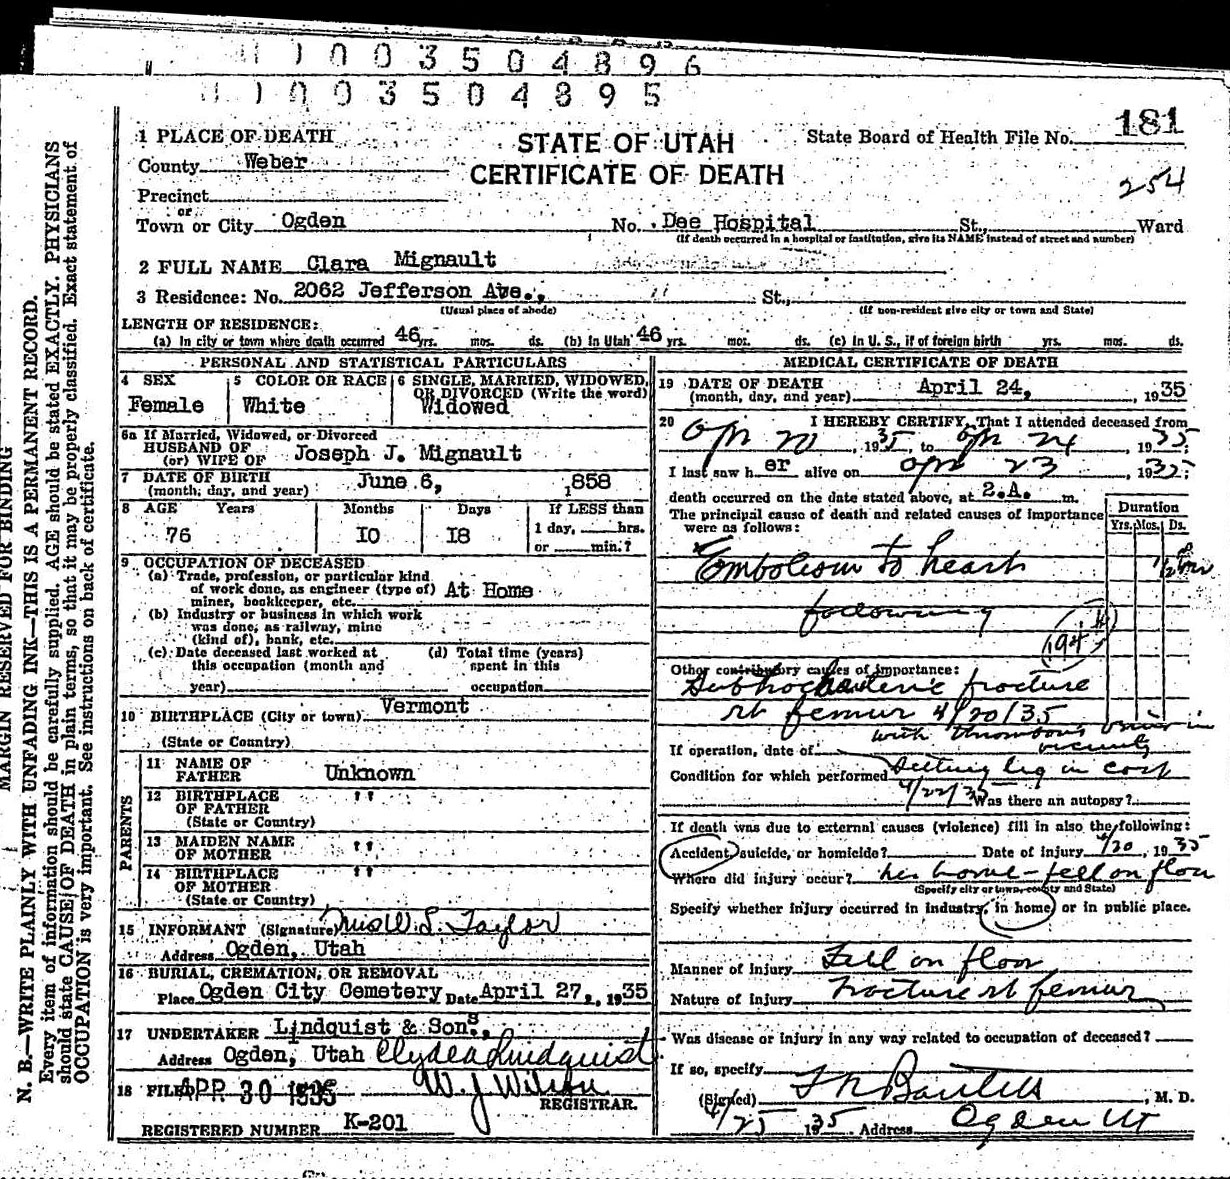 1 0 0 3 5 0 4 8 9 6
1 0 0 3 5 0 4 8 9 5
181
254
STATE OF UTAH
CERTIFICATE OF DEATH
State Board of Health File No.
1 PLACE OF DEATH
County Weber
Precinct
or
Town or City Ogden No. Dee Hospital St., Ward
(If death occurred in a hospital or institution, give its NAME instead of street and number)
2 FULL NAME Clara Mignault
3 Residence: No. 2062 Jefferson Ave., St.,
(Usual place of abode) (If non-resident give city or town and State)
LENGTH OF RESIDENCE:
(a) In city or town where death occurred 46 yrs. mos. ds. (b) In Utah 46 yrs. mos. ds. (c) In U. S., if of foreign birth yrs. mos. ds.
PERSONAL AND STATISTICAL PARTICULARS
4 SEX Female
5 COLOR OR RACE White
6 SINGLE, MARRIED, WIDOWED,
OR DIVORCED (Write the word)
Widowed
6a If Married, Widowed, or Divorced
HUSBAND OF
(or) WIFE OF Joseph J. Mignault
7 DATE OF BIRTH
(month, day, and year) June 6, 1858
8 AGE Years Months Days If LESS than
76 I0 I8 1 day, hrs.
or min.?
9 OCCUPATION OF DECEASED
(a) Trade, profession, or particular kind
of work done, as engineer (type of) At Home
miner, bookkeeper, etc.
(b) Industry or business in which work
was done; as railway, mine
(kind of), bank, etc.
(c) Date deceased last worked at (d) Total time (years)
this occupation (month and spent in this
year) occupation
10 BIRTHPLACE (City or town) Vermont
(State or Country)
PARENTS
11 NAME OF
FATHER Unknown
12 BIRTHPLACE "
OF FATHER
(State or Country)
13 MAIDEN NAME "
OF MOTHER
14 BIRTHPLACE "
OF MOTHER
(State or Country)
15 INFORMANT (Signature) Mrs W. L. Taylor
Address Ogden, Utah
16 BURIAL, CREMATION, OR REMOVAL
Place Ogden City Cemetery Date April 27, 1935
17 UNDERTAKER Lindquist & Sons,
Address Ogden, Utah Clyde A Lindquist
18 FILED APR 30 1935 W. J. Wilson
REGISTRAR.
REGISTERED NUMBER K-201
MEDICAL CERTIFICATE OF DEATH
19 DATE OF DEATH
(month, day, and year) April 24, 1935
20 I HEREBY CERTIFY, That I attended deceased from
Apr 20, 1935, to Apr 24, 1935;
I last saw her alive on Apr 23, 1935;
death occurred on the date stated above, at 2.A. m.
The principal cause of death and related causes of importance
were as follows:
Duration
Yrs. Mos. Ds.
Embolism to heart 1/2
following
194
Other contributory causes of importance:
Subtrochanteric fracture
rt femur 4/20/35
with thrombosis in
vicinity
If operation, date of
Condition for which performed Setting leg in cast
4/22/35 Was there an autopsy?
If death was due to external causes (violence) fill in also the following:
Accident, suicide, or homicide? Date of injury 4/20, 1935
Where did injury occur? her home - fell on floor
(Specify city or town, county and State)
Specify whether injury occurred in industry, in home, or in public place.
Manner of injury Fell on floor
Nature of injury Fracture rt femur
Was disease or injury in any way related to occupation of deceased?
If so, specify
(Signed) , M. D.
4/25 1935 Address Ogden Ut
MARGIN RESERVED FOR BINDING
N. B.—WRITE PLAINLY WITH UNFADING INK—THIS IS A PERMANENT RECORD.
Every item of information should be carefully supplied. AGE should be stated EXACTLY. PHYSICIANS
should state CAUSE OF DEATH in plain terms, so that it may be properly classified. Exact statement of
OCCUPATION is very important. See instructions on back of certificate.